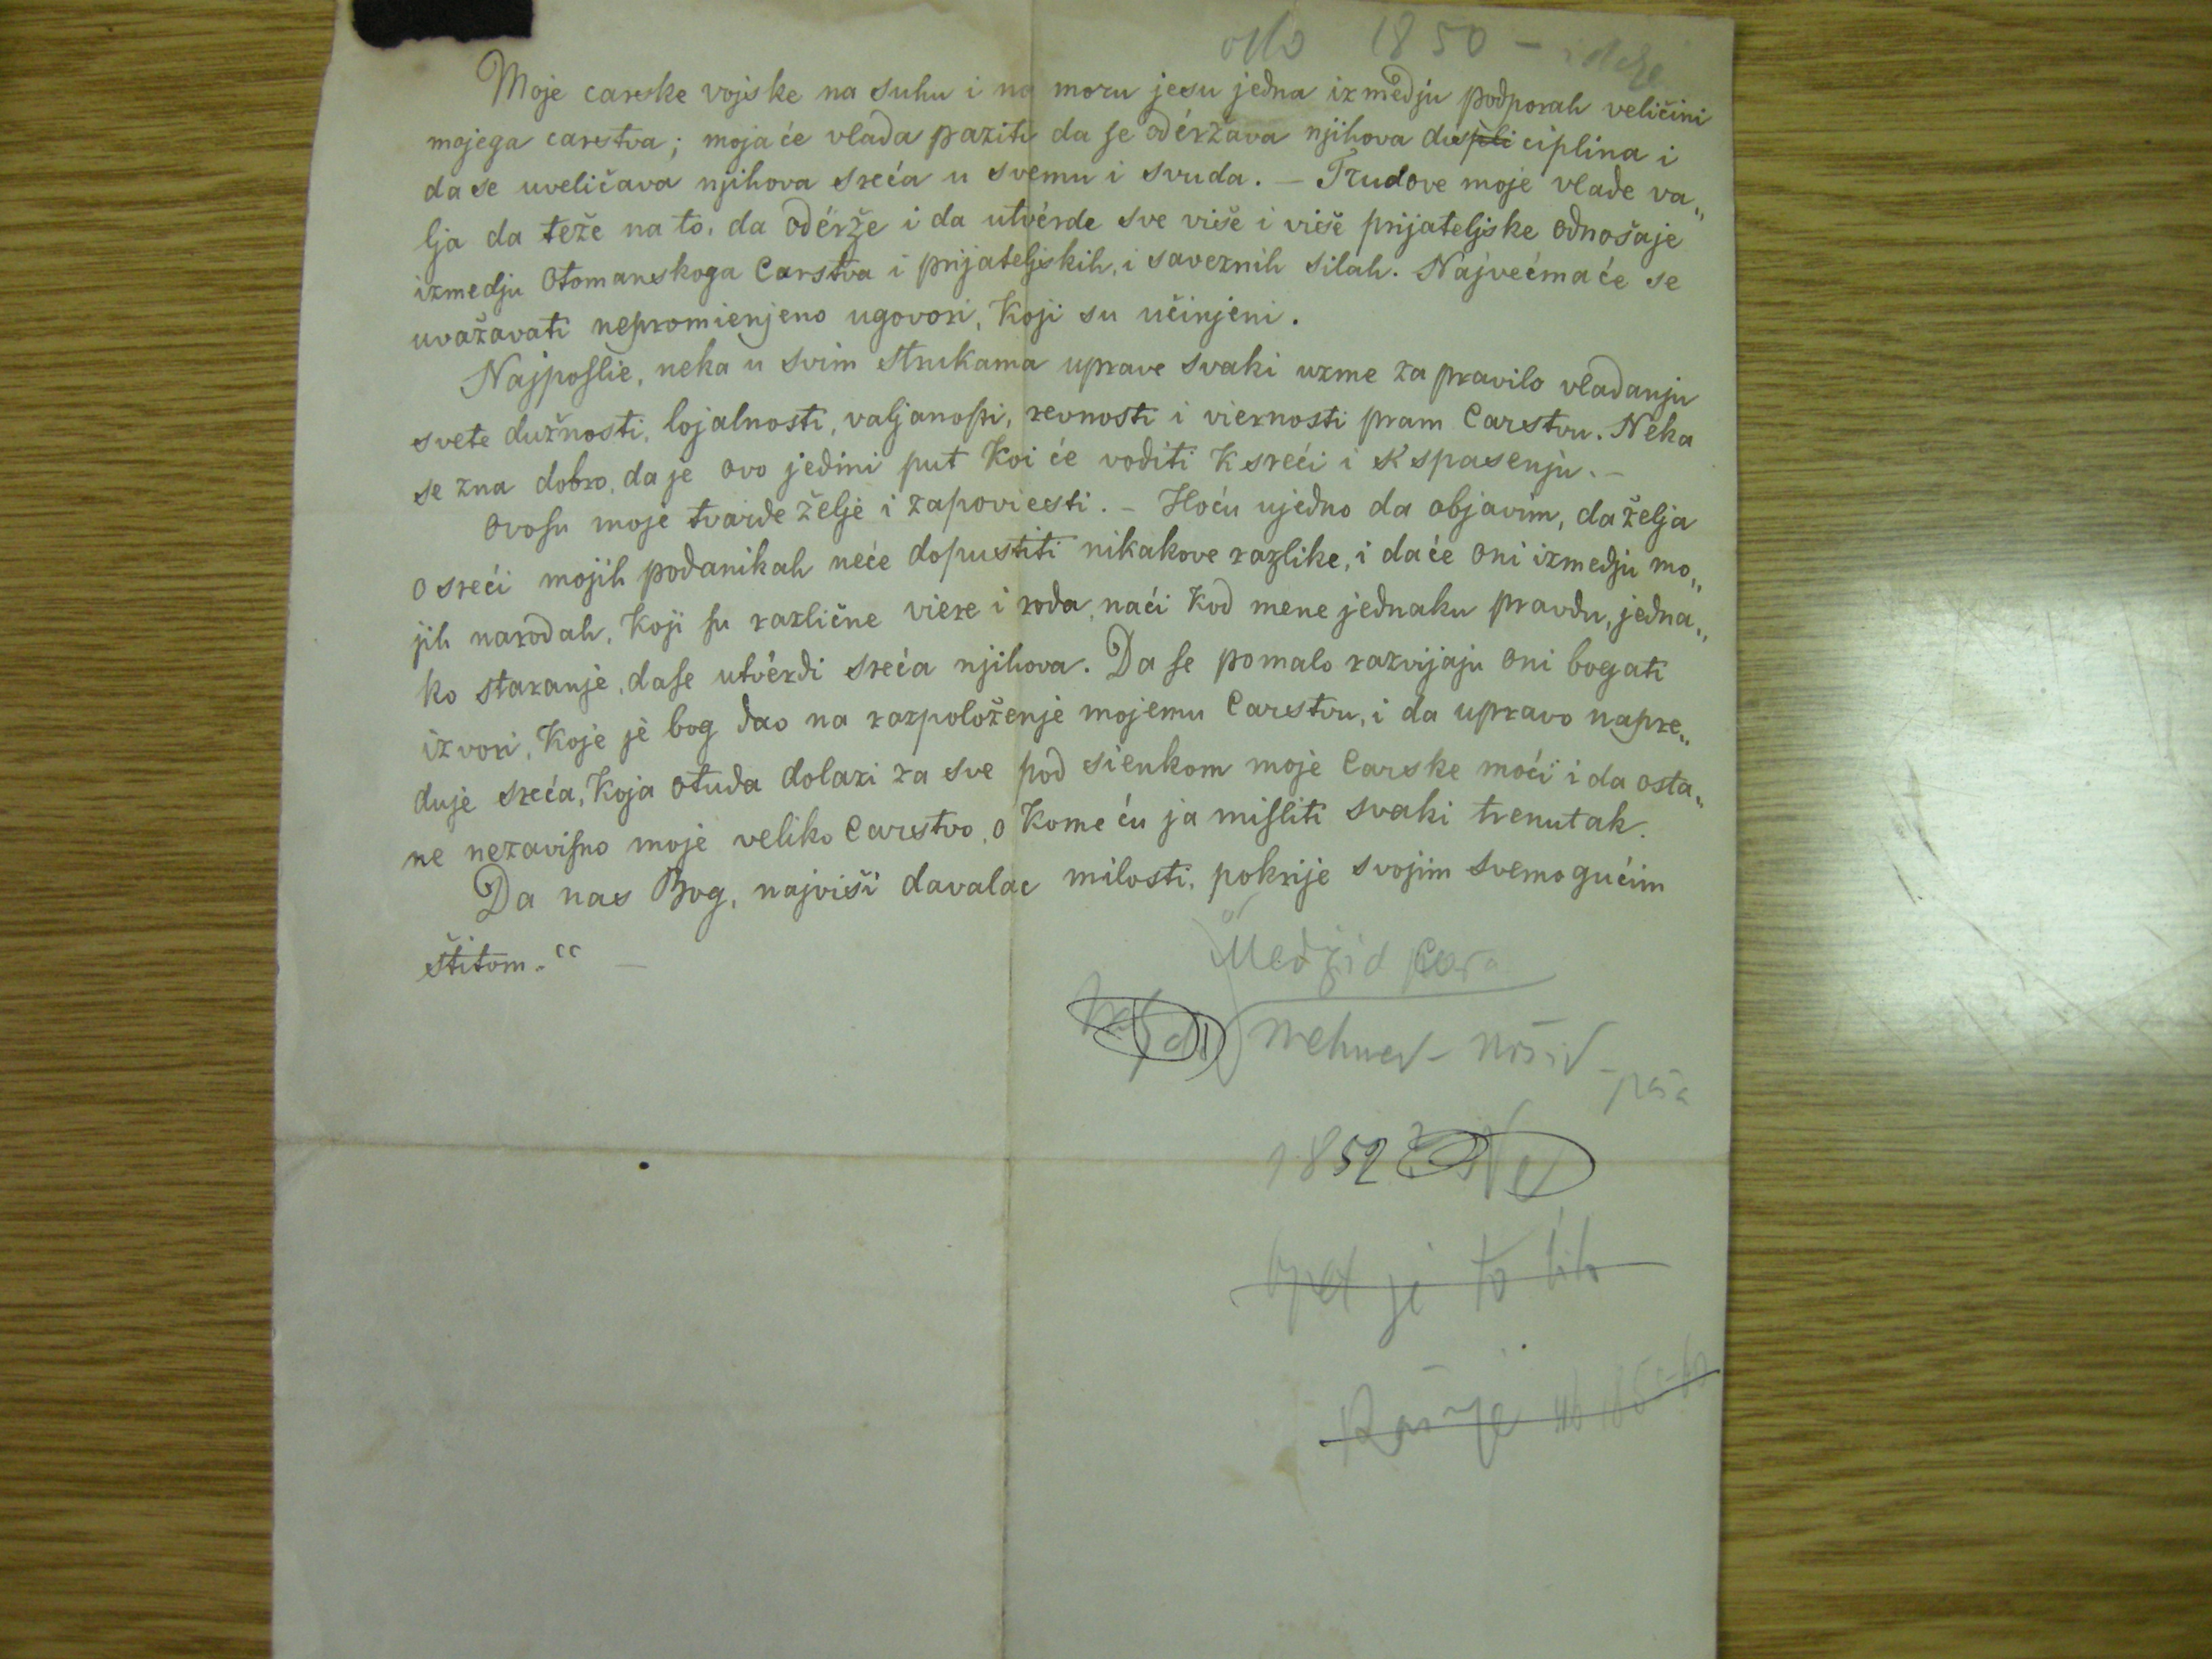 1850 –
Moje carske vojske na suhu i na moru jesu jedna izmedju podporah veličini
mojega carstva; moja će vlada paziti da se odéržava njihova dis̶p̶l̶i̶ciplina i
da se uveličava njihova sreća u svemu i svuda. – Trudove moje vlade va„
lja da teže na to, da odérže i da utvérde sve više i više prijateljske odnošaje
izmedju Otomanskoga Carstva i prijateljskih, i saveznih silah. Najvećma će se
uvažavati nepromienjeno ugovori, Koji su učinjeni.
Najposlie, neka u svim strukama uprave svaki uzme za pravilo vladanju
svete dužnosti, lojalnosti, valjanosti, revnosti i viernosti pram Carstvu. Neka
se zna dobro, da je ovo jedini put Koi će voditi K sreći i K spasenju. –
Ovo su moje tvarde želje i zapoviesti. – Hoću ujedno da objavim, da želja
o sreći mojih podanikah neće dopustiti nikakove razlike, i da će oni izmedju mo„
jih narodah, Koji su različne viere i roda, naći Kod mene jednaku pravdu, jedna„
ko staranje, da se utvérdi sreća njihova. Da se pomalo razvijaju oni bogati
izvori, Koje je bog dao na razpoloženje mojemu Carstvu, i da upravo napre„
duje sreća, Koja otuda dolazi za sve pod sienkom moje Carske moći i da osta„
ne nezavisno moje veliko Carstvo, o Kome ću ja misliti svaki trenutak.
Da nas Bog, najviši davalac milosti, pokrije svojim svemogućim
štitom." –
Medžid
mehmed –
paša
1852